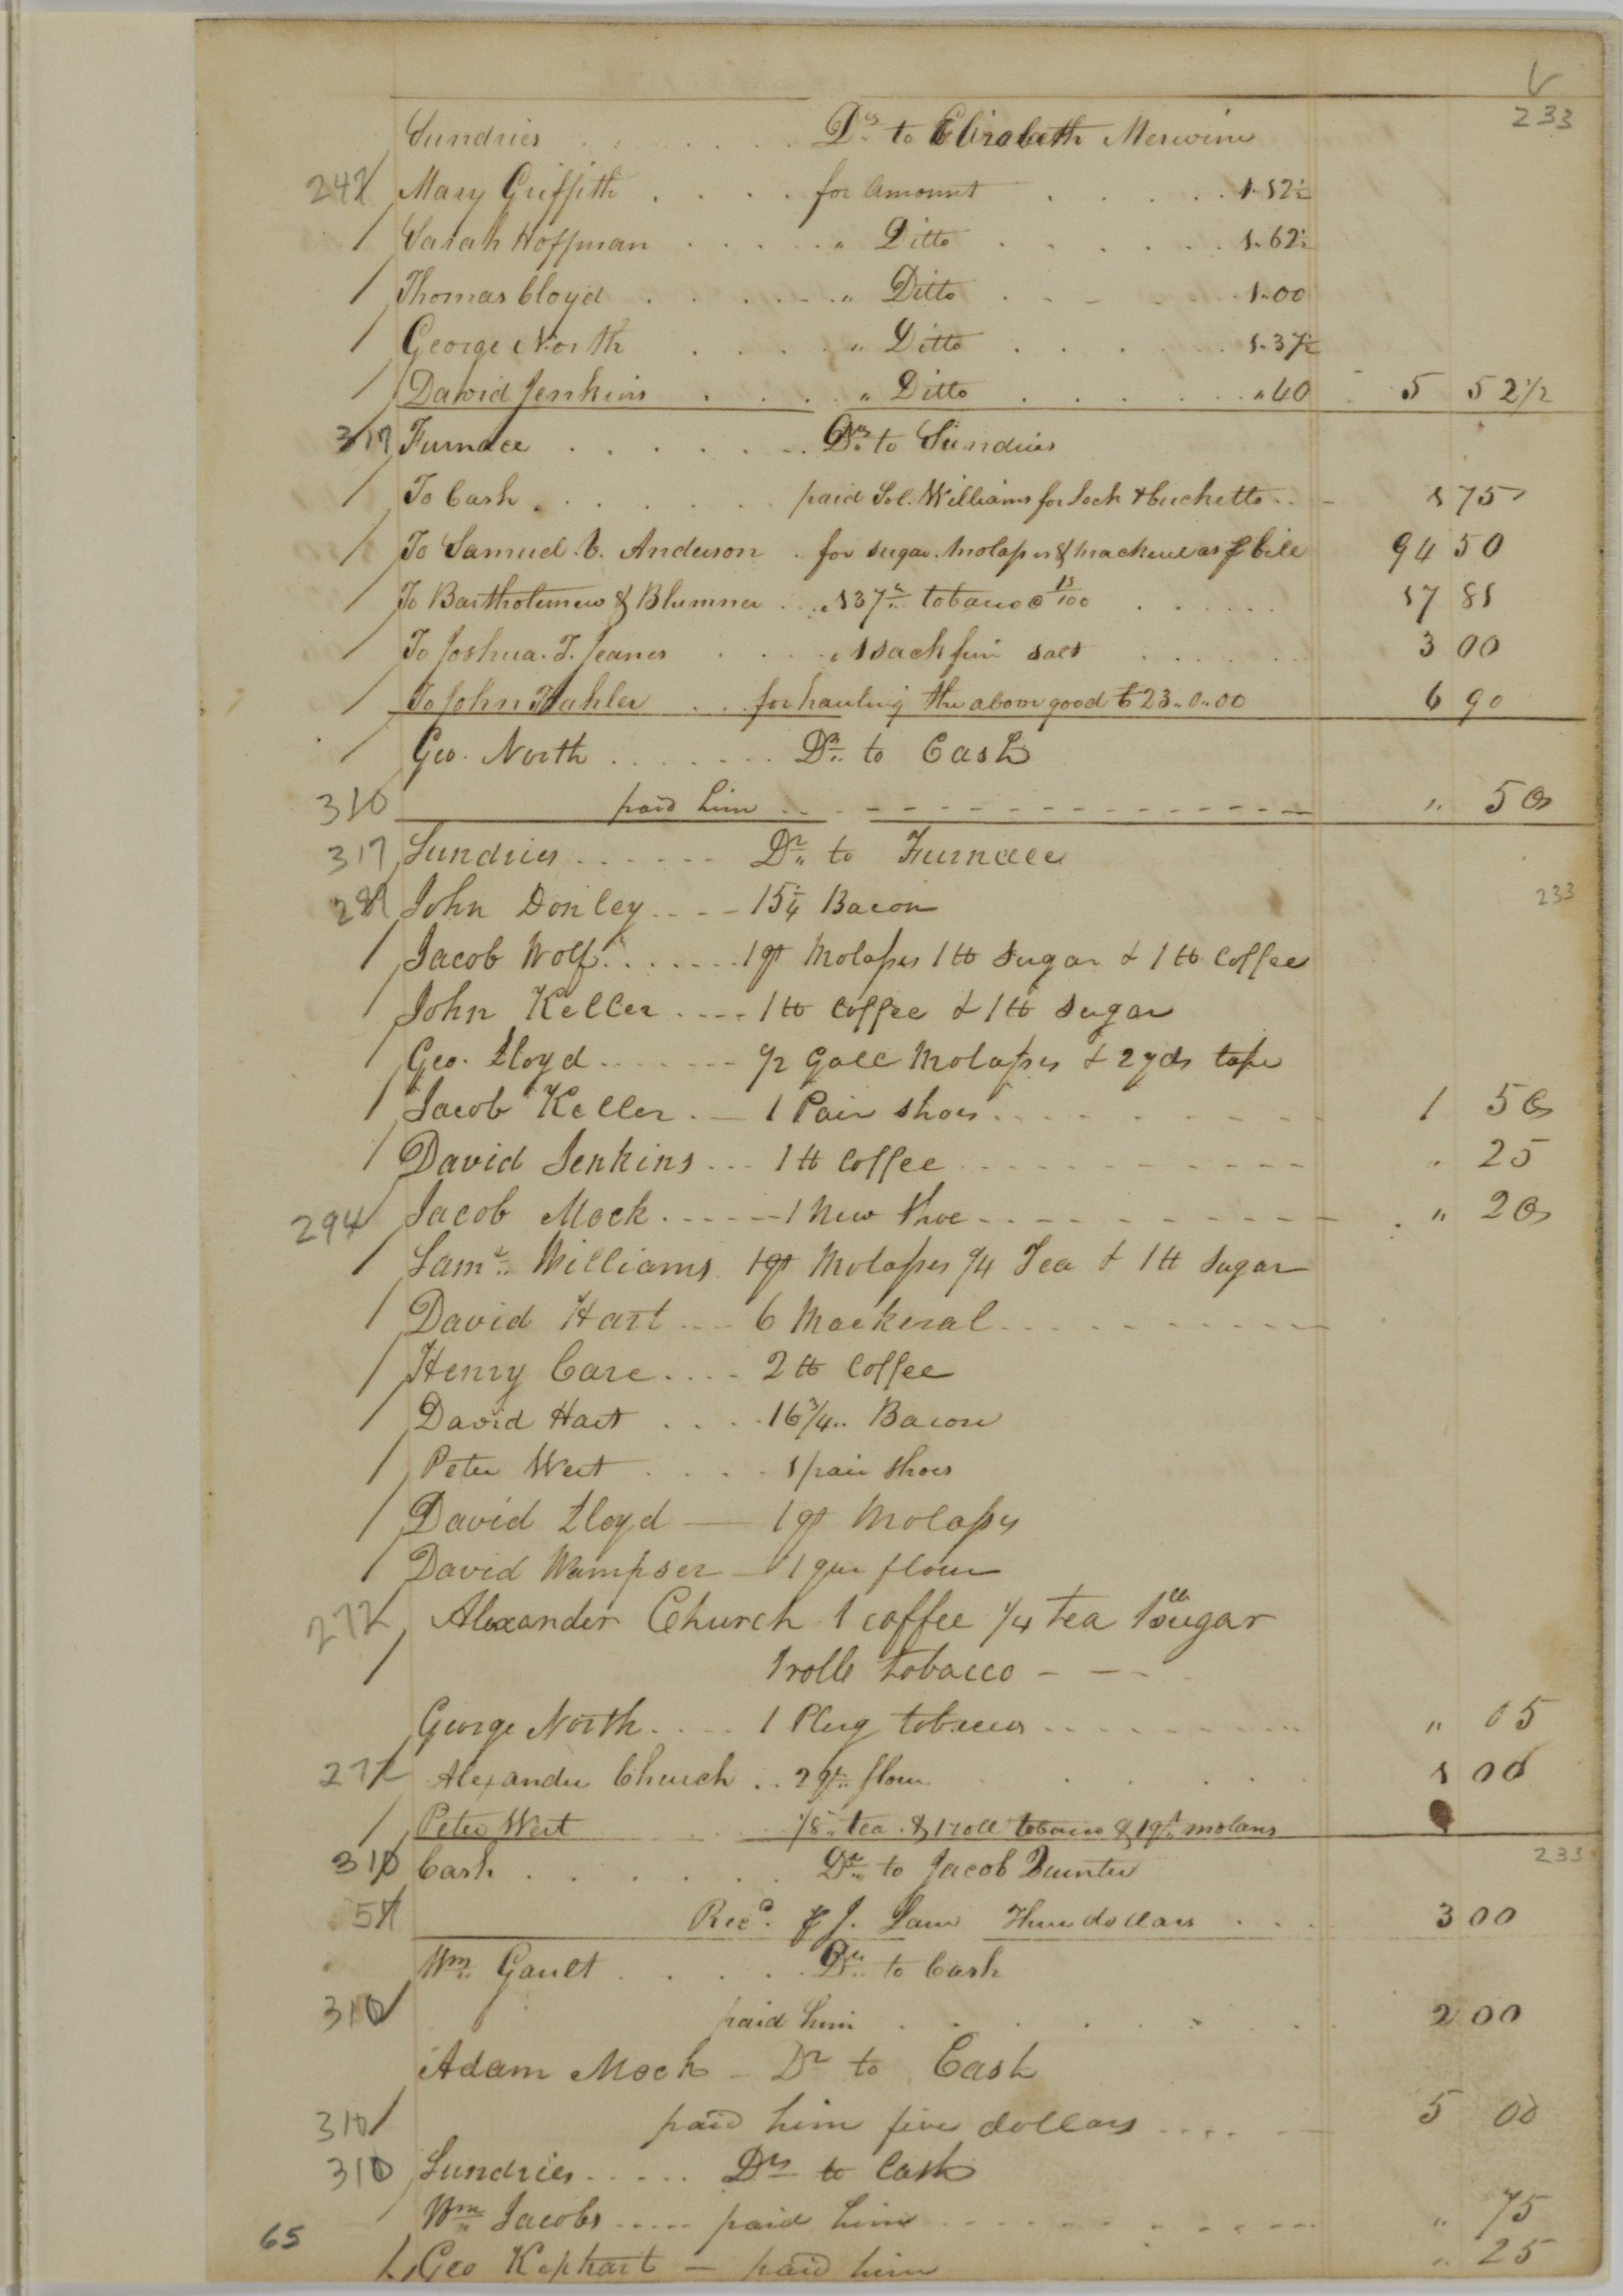 233
Sundries . . . . . Drs to Elizabeth Merwine
242 Mary Griffith . . . . for Amount . . . . . 1.12½
Sarah Hoffman . . . . . " Ditto . . . . . . 1.62½
Thomas Cloyd . . . . . . " Ditto . . . . . 1.00
George North . . . . " Ditto . . . . . 1.37½
David Jenkins . . . . " Ditto . . . . . " 40 5 52½
317 Furnace . . . . . . . Dr to Sundries
To Cash . . . . . . . paid Sol. Williams for Lock & bucketts . . 1 75
To Samuel C. Anderson . for sugar. molasses & mackerel as ⅌ bill 94 50
To Bartholemew & Blumner . . " 137 lb tobacco @ 13/100 . . . . . 17 81
To Joshua. T. Jeanes . . . . " 1 sack fine salt . . . . . 3 00
To John Kahler . . . for hauling the above good 23..0..00 6 90
Geo. North . . . . . . . Dr to Cash
310 paid him . . - - - - - - " 50
317 Sundries . . . . . . Dr to Furnace
289 John Donley . . . . 15¼ Bacon
233
Jacob Wolf . . . . . . . 1 qt Molasses 1 lb sugar & 1 lb Coffee
John Keller . . . . 1 lb Coffee & 1 lb sugar
Geo. Lloyd . . . . . . . ½ Gall Molasses & 2 yds tape
Jacob Keller . — 1 Pair shoes . . . . . . 1 50
David Jenkins . . . 1 lb Coffee . . . . . . " 25
294 Jacob Mock . . . . . 1 New Shoe - - - - - " 20
Saml Williams 1 qt Molasses ¼ Tea & 1 lb Sugar
David Hart . . . . 6 Mackeral . . . . . . . .
Henry Care . . . . 2 lb Coffee
David Hart . . . . 16¾ .. Bacon
Peter Wert . . . . 1 pair Shoes
David Lloyd — 1 qt Molasses
David Wampser — 1 qur flour
272 Alexander Church 1 coffee ¼ tea 1 lb sugar
1 rolle tobacco - - -
George North . . . . 1 Plug tobacco . . . . . . . " 05
272 Alexander Church . . 2 qr flour . . . . . 1 00
Peter Wert . . . ⅛ " tea . & 1 roll tobacco & 1 qt molass
233
310 Cash . . . . . . Dr to Jacob Buntee
57 Recd. ⅌ J. Law Three dollars . . . 3 00
Wm Gault . . . . . Dr to Cash
310 paid him . . . . . . . . 2 00
Adam Mock - Dr to Cash
310 paid him five dollars . . . . 5 00
310 Sundries . . . . . Drs to Cash
Wm Jacobs . . . . . paid him . . . . . . . . " 75
65
Geo Kephart — paid him " 25